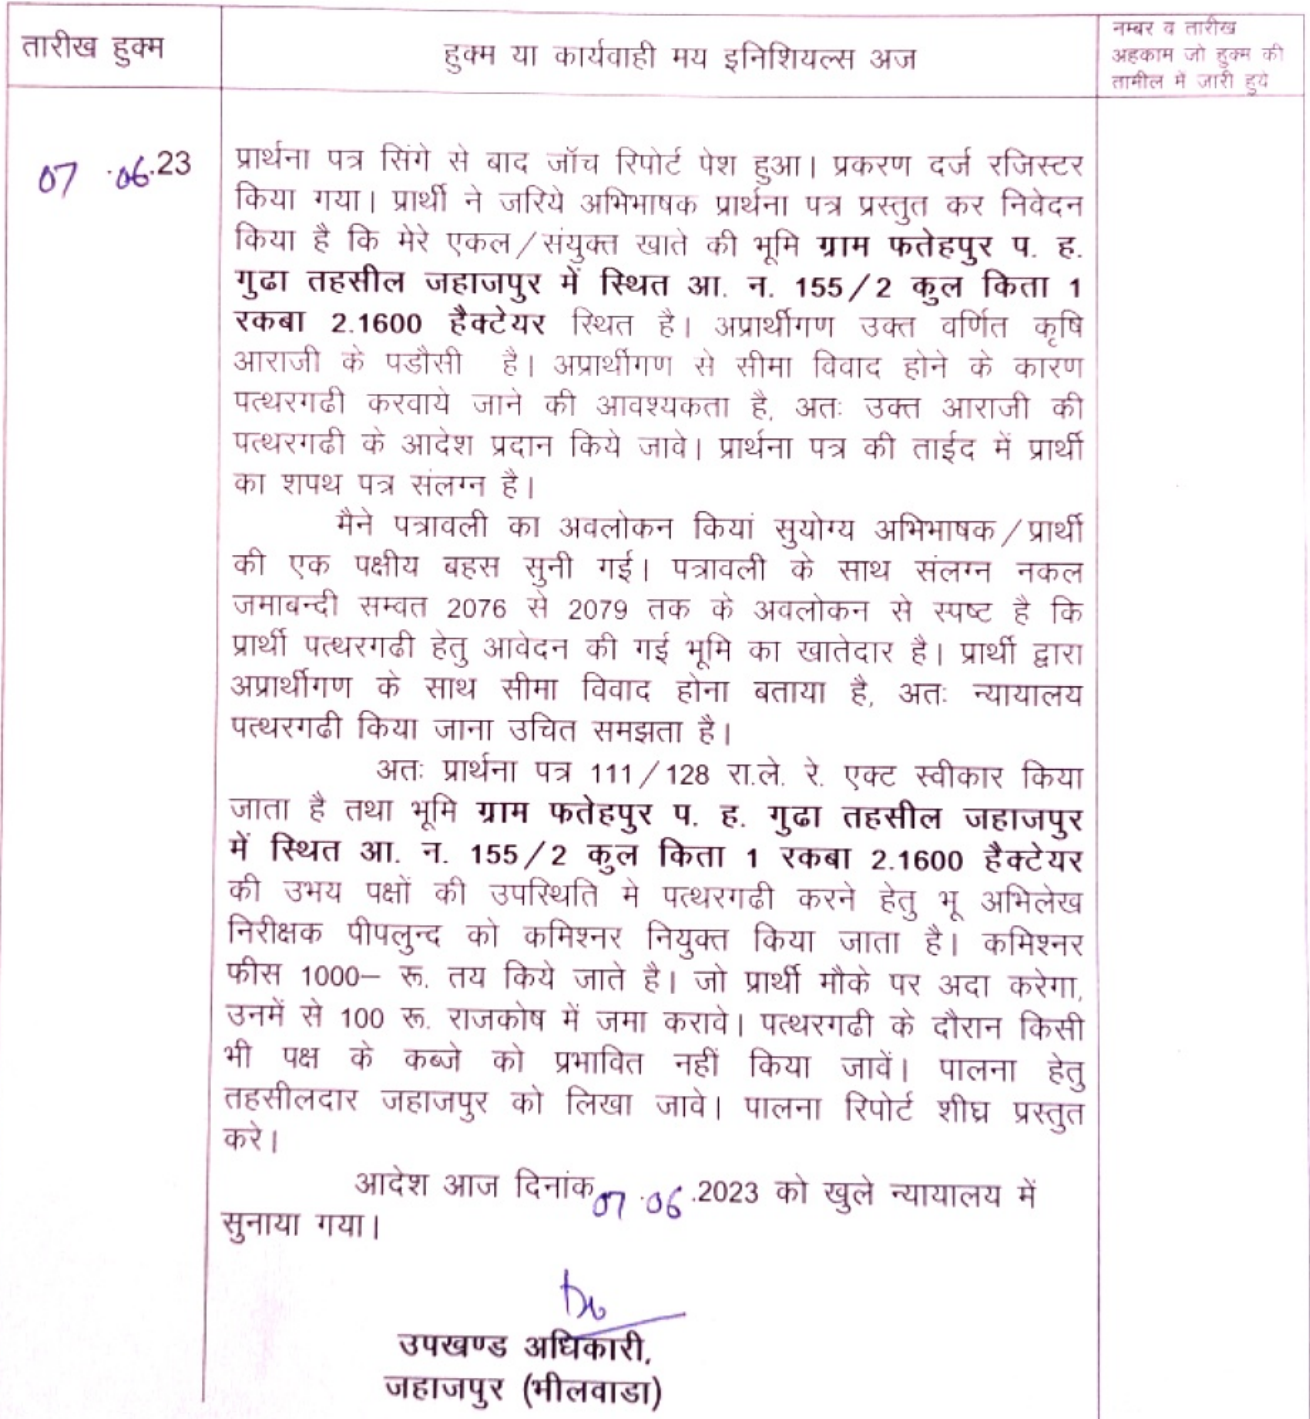 तारीख हुक्म
हुक्म या कार्यवाही मय इनिशियल्स अज
नम्बर व तारीख
अहकाम जो हुक्म की
तामील में जारी हुये
07 .06.23
प्रार्थना पत्र सिंगे से बाद जॉच रिपोर्ट पेश हुआ। प्रकरण दर्ज रजिस्टर
किया गया। प्रार्थी ने जरिये अभिभाषक प्रार्थना पत्र प्रस्तुत कर निवेदन
किया है कि मेरे एकल/संयुक्त खाते की भूमि ग्राम फतेहपुर प. ह.
गुढा तहसील जहाजपुर में स्थित आ. न. 155/2 कुल किता 1
रकबा 2.1600 हैक्टेयर स्थित है। अप्रार्थीगण उक्त वर्णित कृषि
आराजी के पडौसी है। अप्रार्थीगण से सीमा विवाद होने के कारण
पत्थरगढी करवाये जाने की आवश्यकता है, अतः उक्त आराजी की
पत्थरगढी के आदेश प्रदान किये जावे। प्रार्थना पत्र की ताईद में प्रार्थी
का शपथ पत्र संलग्न है।
मैने पत्रावली का अवलोकन कियां सुयोग्य अभिभाषक/प्रार्थी
की एक पक्षीय बहस सुनी गई। पत्रावली के साथ संलग्न नकल
जमाबन्दी सम्वत 2076 से 2079 तक के अवलोकन से स्पष्ट है कि
प्रार्थी पत्थरगढी हेतु आवेदन की गई भूमि का खातेदार है। प्रार्थी द्वारा
अप्रार्थीगण के साथ सीमा विवाद होना बताया है, अतः न्यायालय
पत्थरगढी किया जाना उचित समझता है।
अतः प्रार्थना पत्र 111/128 रा.ले. रे. एक्ट स्वीकार किया
जाता है तथा भूमि ग्राम फतेहपुर प. ह. गुढा तहसील जहाजपुर
में स्थित आ. न. 155/2 कुल किता 1 रकबा 2.1600 हैक्टेयर
की उभय पक्षों की उपस्थिति मे पत्थरगढी करने हेतु भू अभिलेख
निरीक्षक पीपलुन्द को कमिश्नर नियुक्त किया जाता है। कमिश्नर
फीस 1000– रू. तय किये जाते है। जो प्रार्थी मौके पर अदा करेगा,
उनमें से 100 रू. राजकोष में जमा करावे। पत्थरगढी के दौरान किसी
भी पक्ष के कब्जे को प्रभावित नहीं किया जावें। पालना हेतु
तहसीलदार जहाजपुर को लिखा जावे। पालना रिपोर्ट शीघ्र प्रस्तुत
करे।
आदेश आज दिनांक 07 .06.2023 को खुले न्यायालय में
सुनाया गया।
उपखण्ड अधिकारी,
जहाजपुर (भीलवाडा)